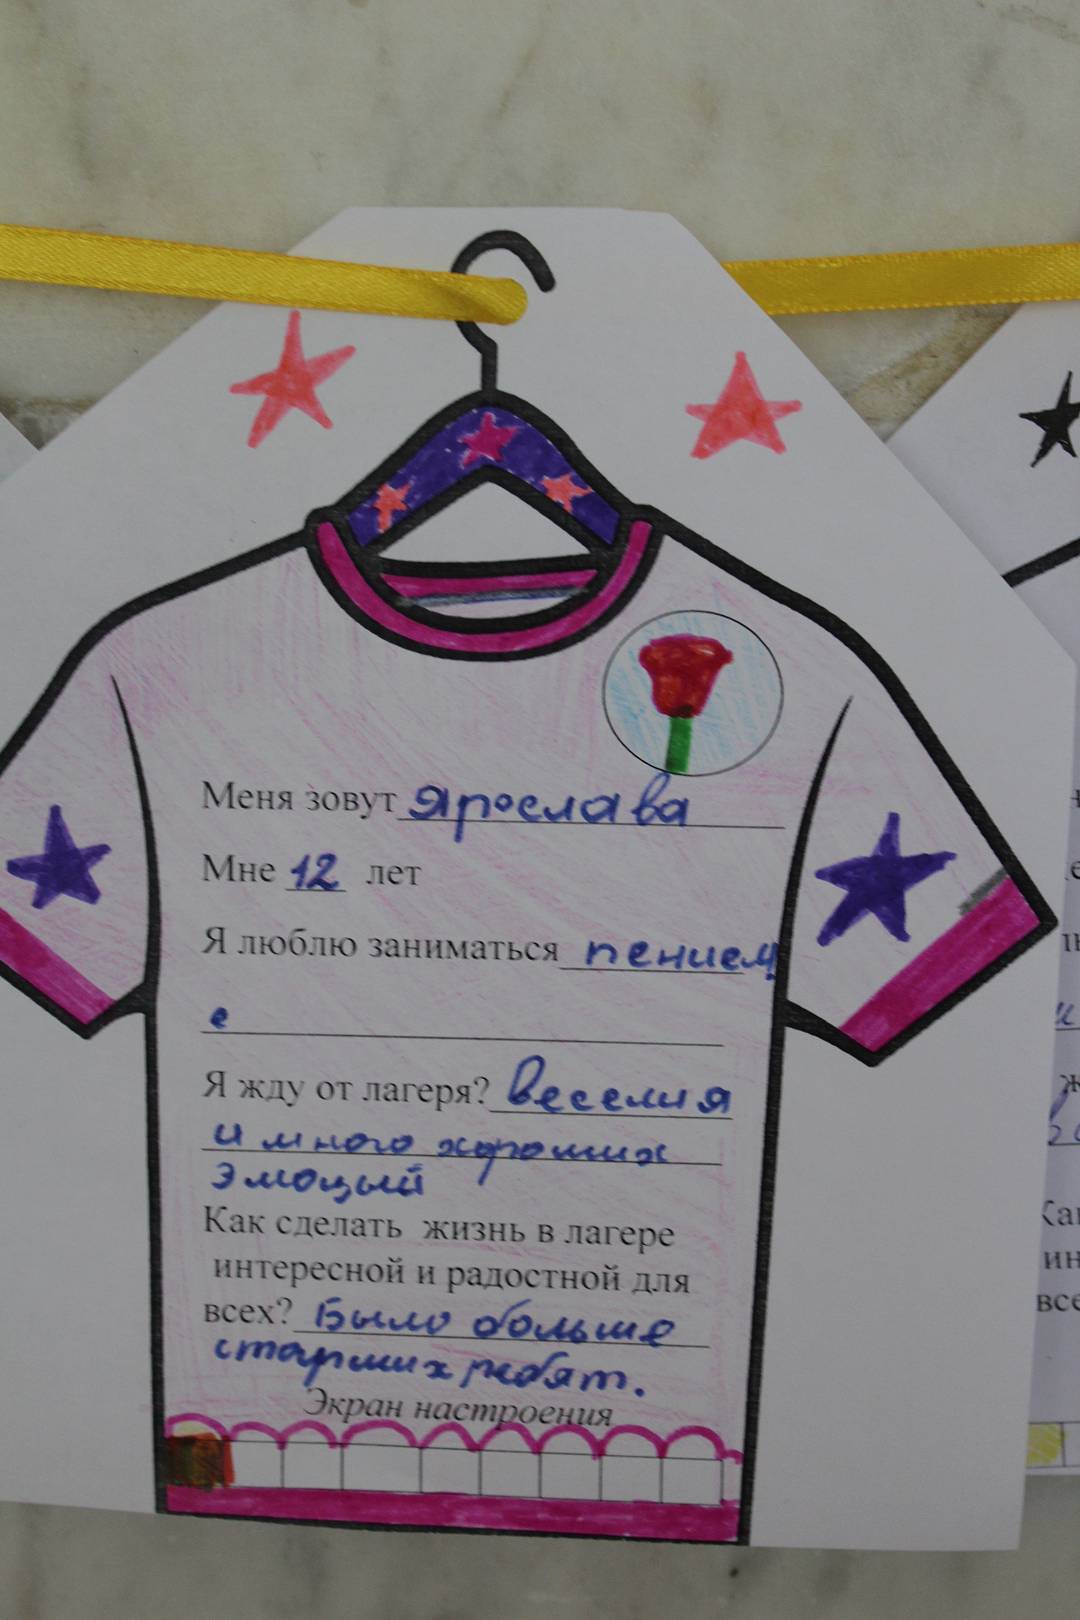 Меня зовут Ярослава
Мне 12 лет
Я люблю заниматься пением
е
Я жду от лагеря? веселия
и много хороших
эмоцый
Как сделать жизнь в лагере
интересной и радостной для
всех? Было больше
старших ребят.
Экран настроения